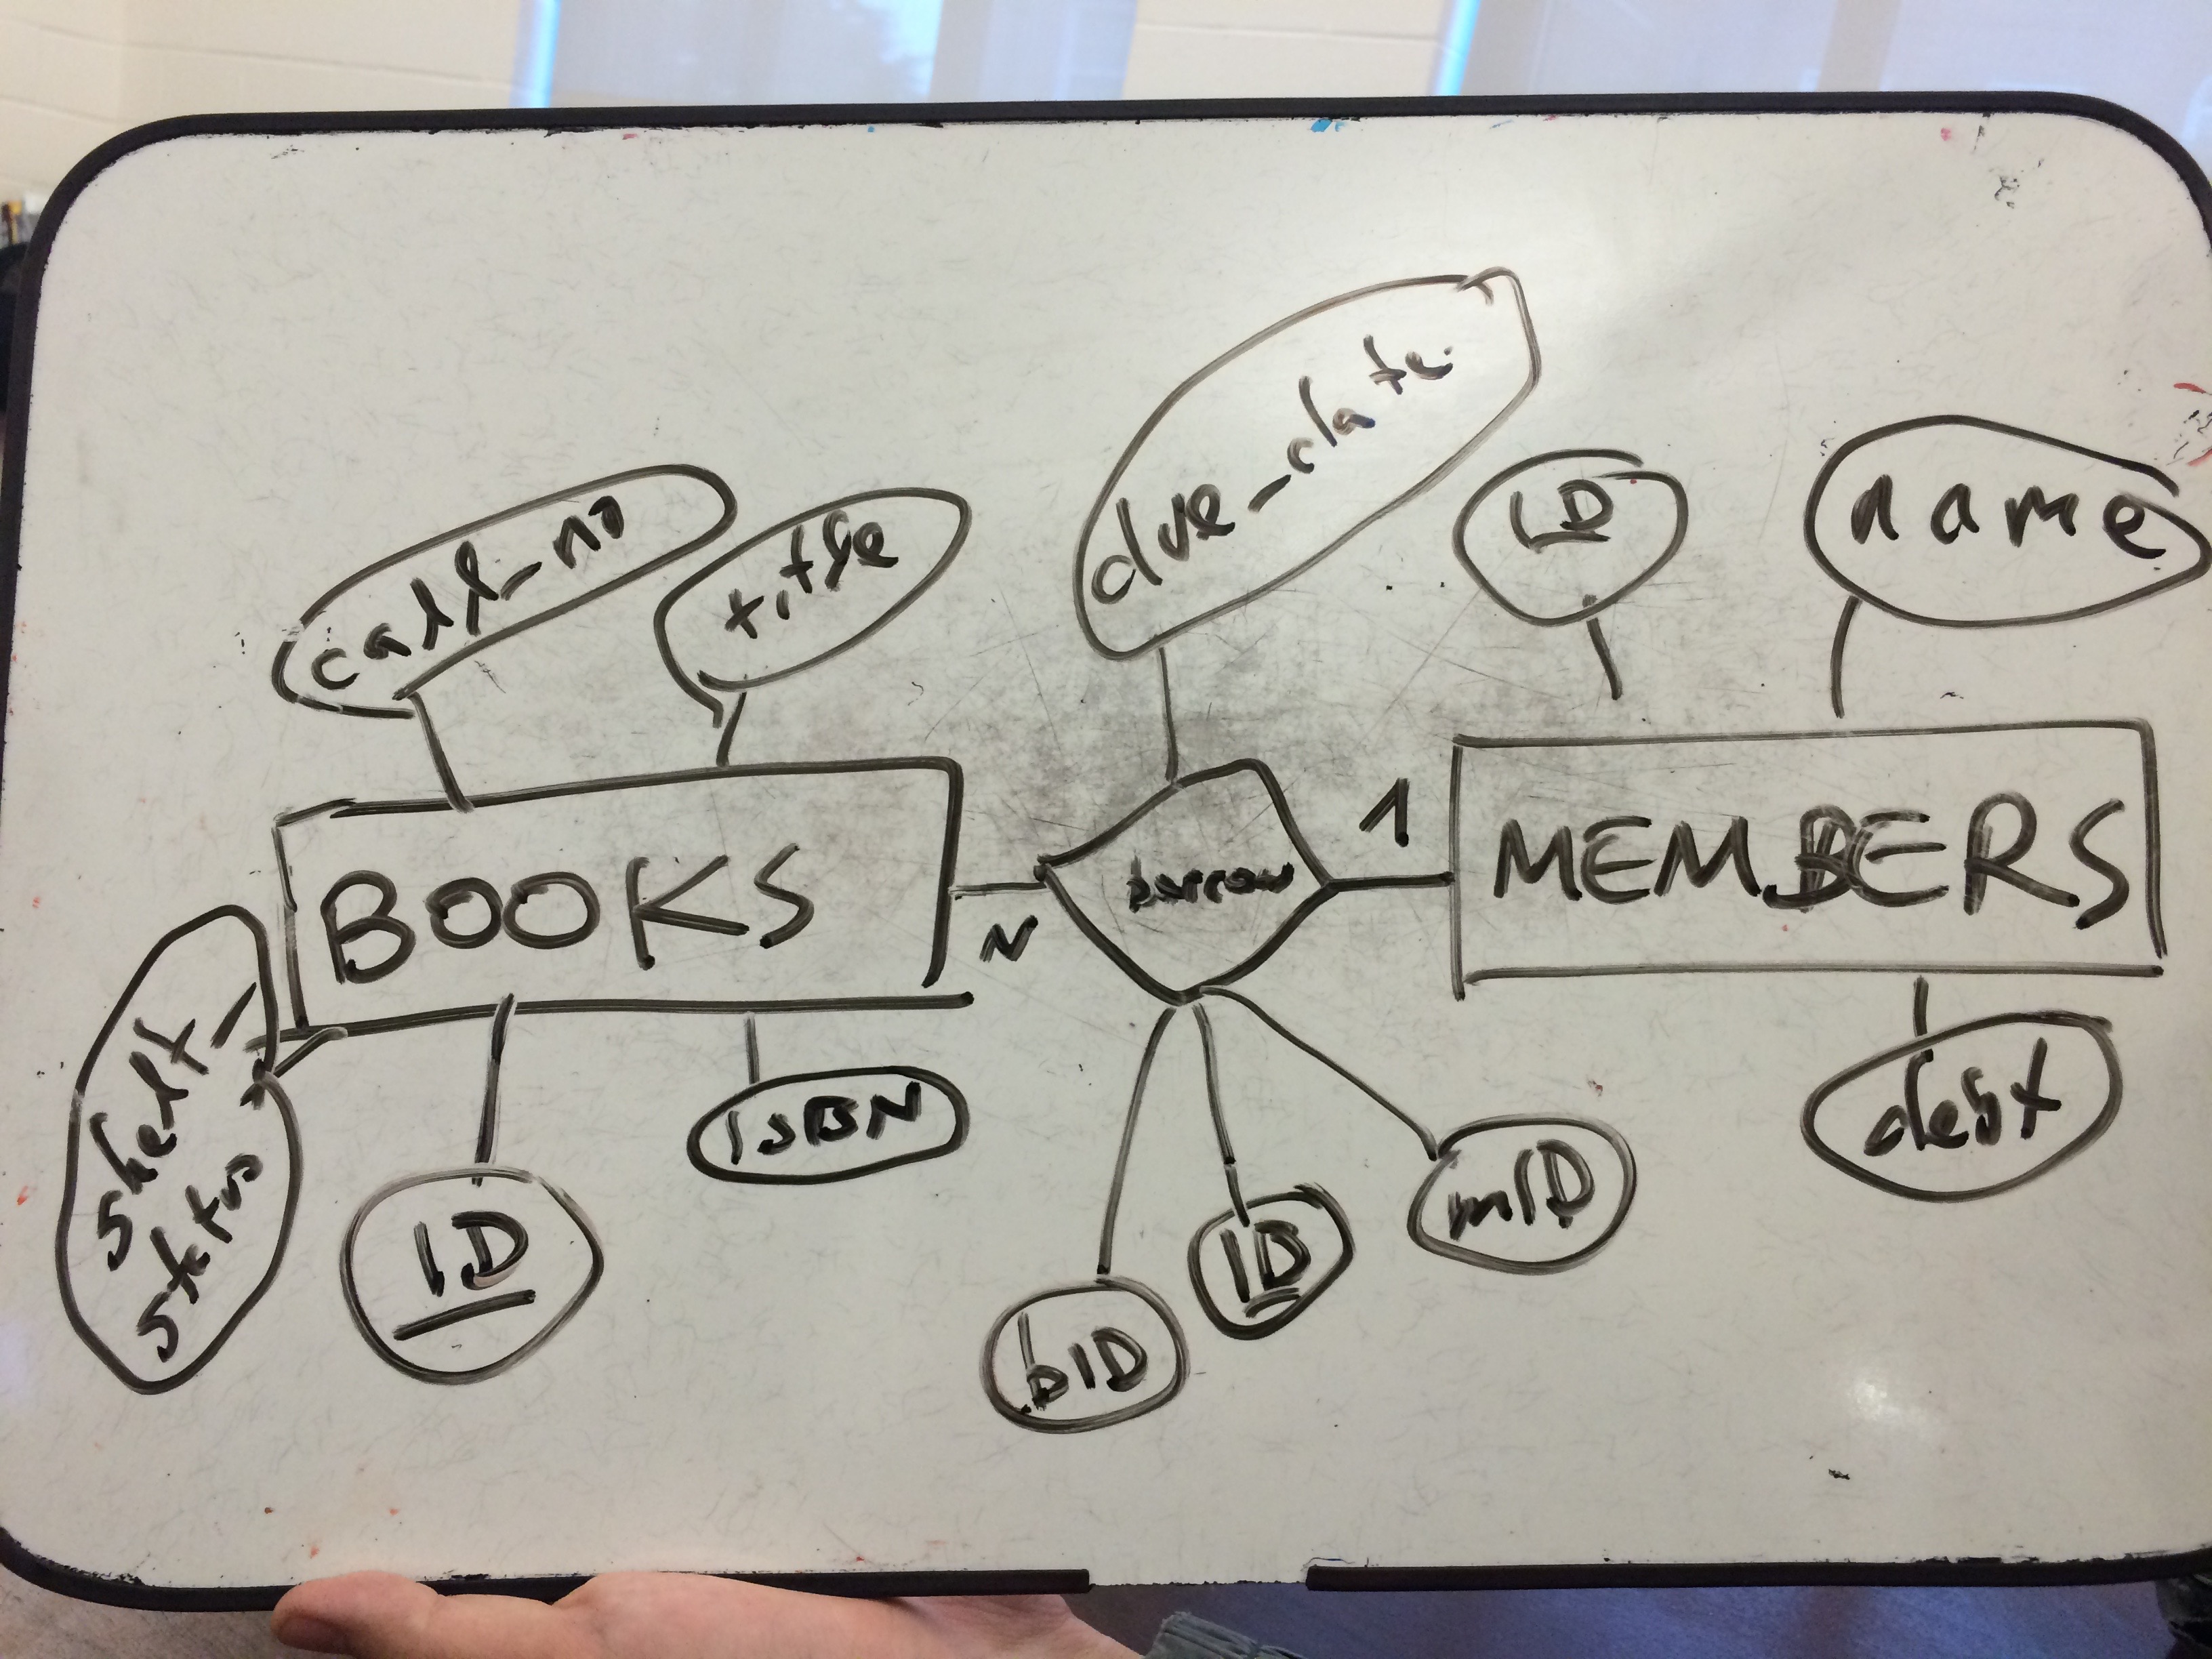 call_no
title
due_date
ID
name
BOOKS
N
borrow
1
MEMBERS
shelf_
status
ID
ISBN
bID
ID
mID
debt